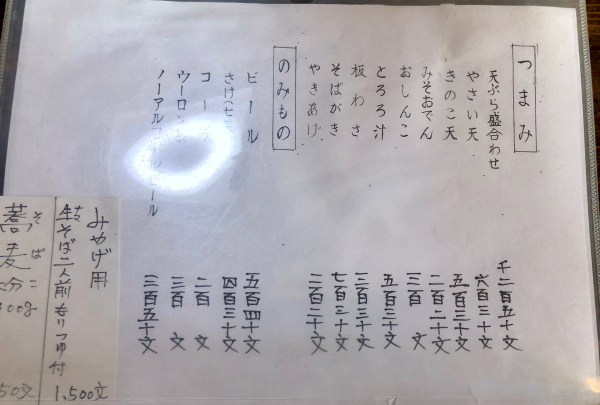 つまみ
天ぷら盛合わせ 千二百五十文
やさい天 六百三十文
きのこ天 五百三十文
みそおでん 二百二十文
おしんこ 三百文
とろろ汁 五百三十文
板わさ 三百三十文
そばがき 七百三十文
やきあげ 二百二十文
のみもの
ビール 五百四十文
さけ 四百三十文
コーラ 二百文
ウーロン茶 三百文
ノーアルコールビール 三百五十文
みやげ用
生そば二人前もりつゆ付 1,500文
蕎麦